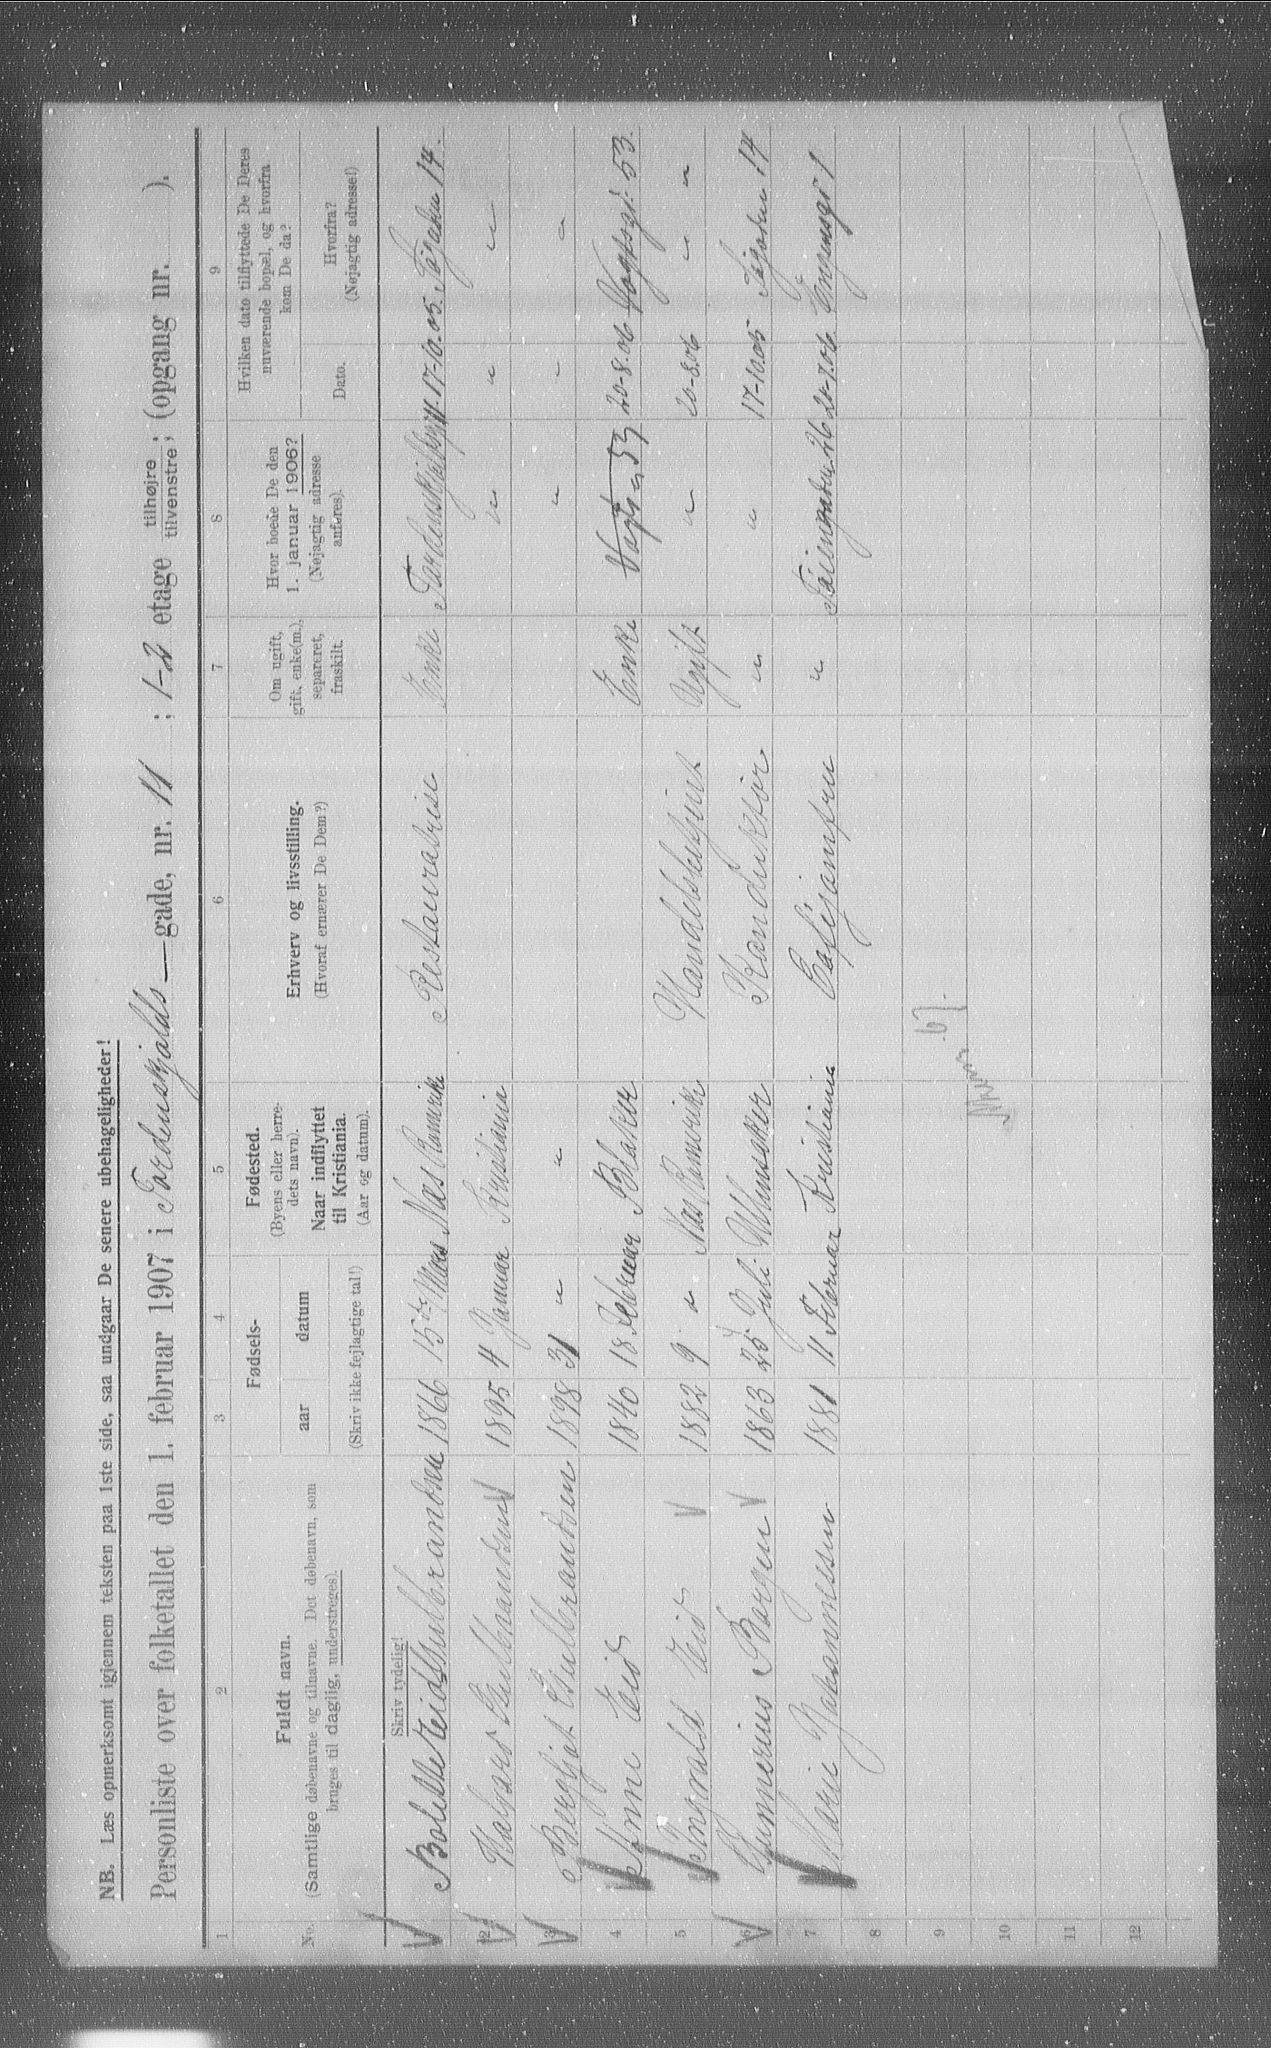 NB. Læs opmerksomt igjennem teksten paa 1ste side, saa undgaar De senere ubehageligheder!
Personliste over folketallet den 1. februar 1907 i Tordenskjolds—gade, nr. 11 ; 1-2 etage tilhøjre, tilvenstre; (opgang nr. ).
1 2 3 4 5 6 7 8 9
No.
Fuldt navn.
(Samtlige døbenavne og tilnavne. Det døbenavn, som
bruges til daglig, understreges).
Fødsels-
aar datum
(Skriv ikke fejlagtige tal!)
Fødested.
(Byens eller herre-
dets navn).
Naar indflyttet
til Kristiania.
(Aar og datum).
Erhverv og livsstilling.
(Hvoraf ernærer De Dem?)
Om ugift,
gift, enke(m.),
separeret,
fraskilt.
Hvor boede De den
1. januar 1906?
(Nøjagtig adresse
anføres).
Hvilken dato tilflyttede De Deres
nuværende bopæl, og hvorfra
kom De da?
Dato.
Hvorfra?
(Nøjagtig adresse!)
Skriv tydelig!
Bolette Eid Gulbrandsen 1866 15de Mars Næs Romerike Restauratrise Enke 17-10.05. 14.
2 Halvard Gulbrandsen 1895 4 Januar Kristiania " " "
3 Bergljot Gulbrandsen 1898 31 " " " " "
4 Anne Eid 1840 18 Februar Blaker Enke 53 20-8.06 Vogtsgt. 53.
5 Ingvald Eid 1882 9 " Næs Romerike Handelsbetjent Ugift " 20-8.06 " "
6 Gunnerius Borgen 1863 25 Juli Ullensaker Konduktør " " 17-10.05 14
7 Marie Johannessen 1881 11 Februar Kristiania Cafejomfru " Tøiengaten 26 20-7.06 1
8
9
10
11
12